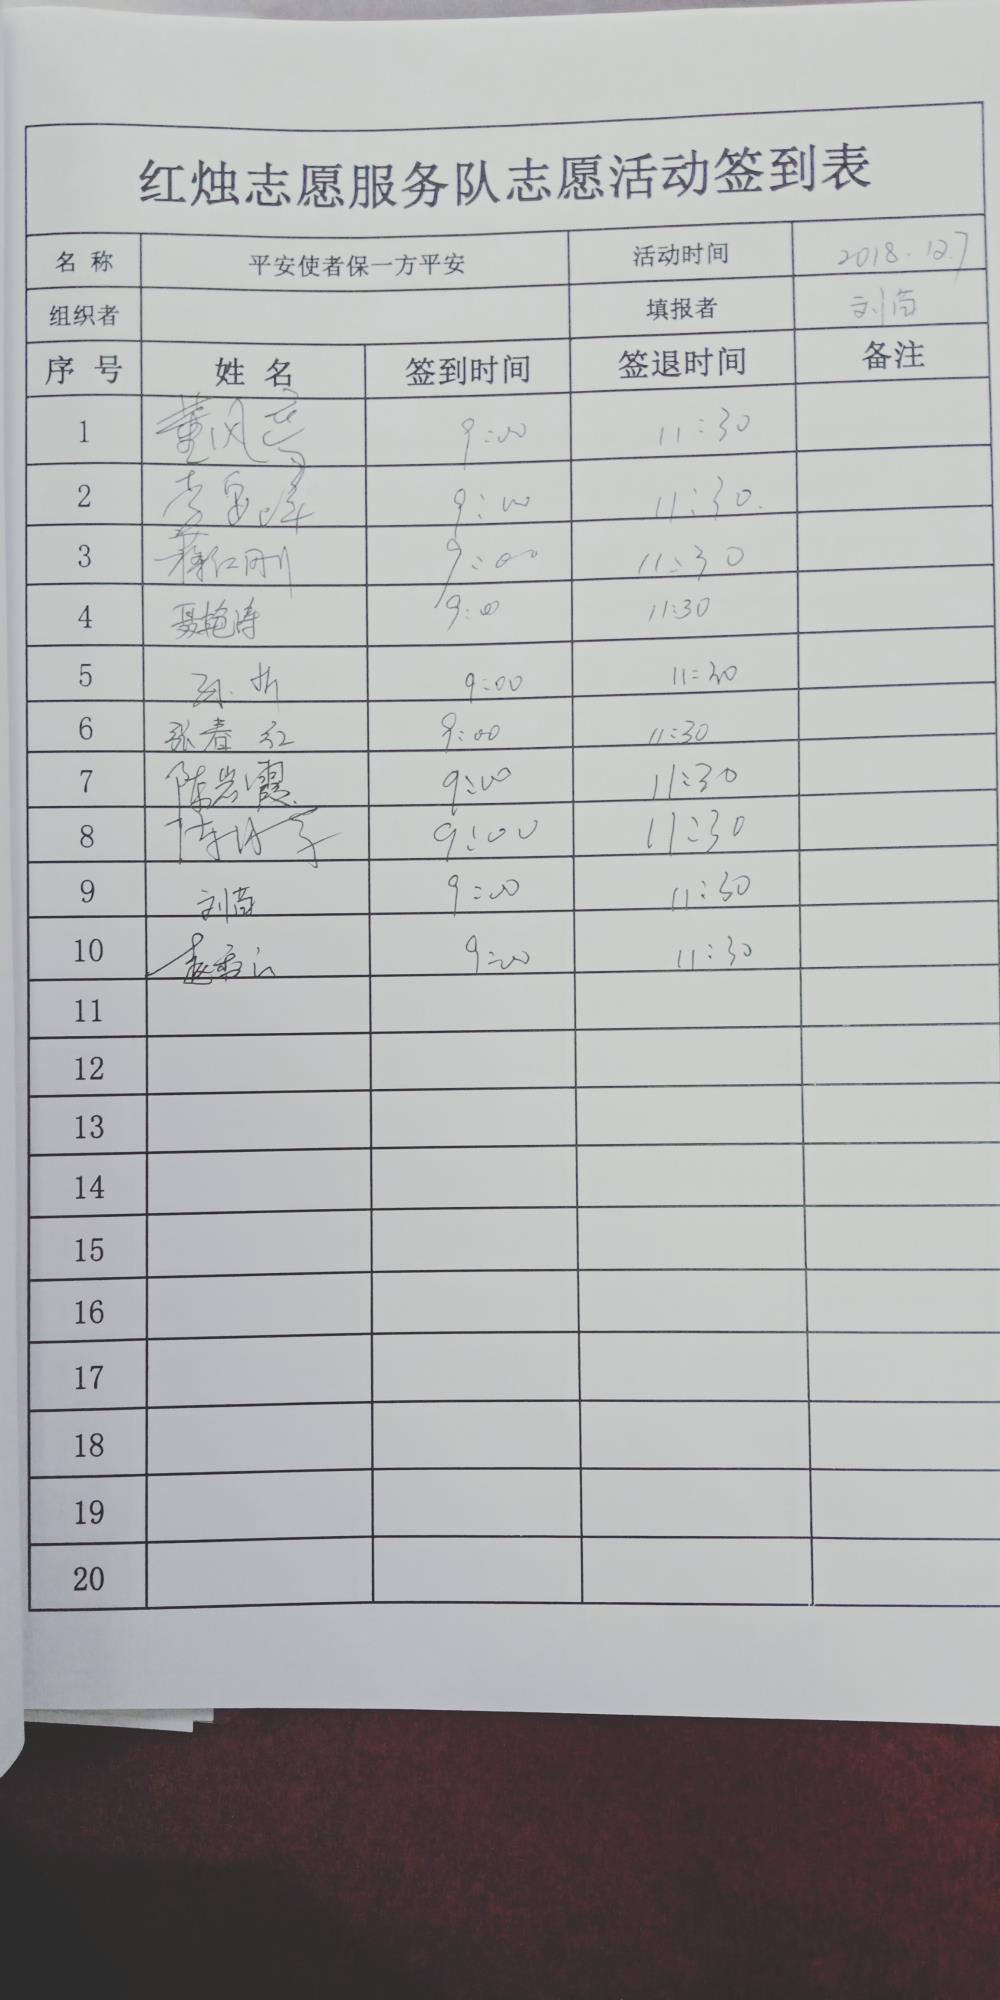 红烛志愿服务队志愿活动签到表
名 称 平安使者保一方平安 活动时间 2018.12.7
组织者 填报者 刘苗
序 号 姓 名 签到时间 签退时间 备注
1 董风 9:00 11:30
2 李 9:00 11:30.
3 薛仁刚 9:00 11:30
4 聂艳涛 9:00 11:30
5 9:00 11:30
6 张春红 9:00 11:30
7 陈岩霞 9:00 11:30
8 9:00 11:30
9 刘苗 9:00 11:30
10 9:00 11:30
11
12
13
14
15
16
17
18
19
20